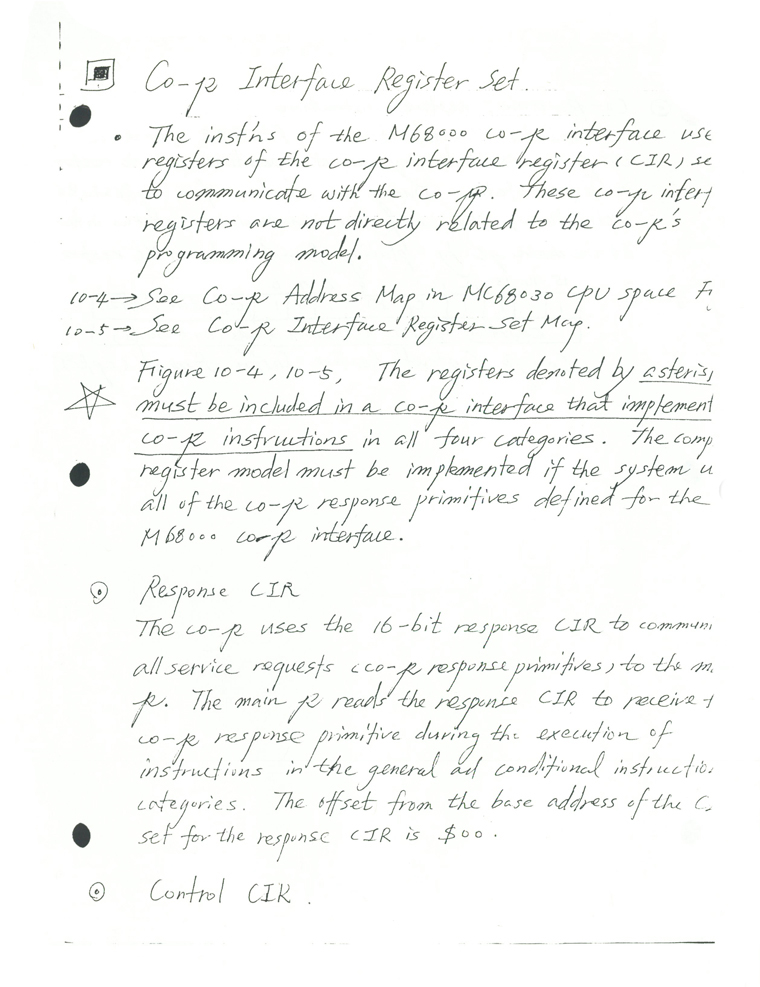 Co-p Interface Register Set.
• The inst'ns of the M68000 co-p interface use
registers of the co-p interface register (CIR) se
to communicate with the co-p. These co-p interf
registers are not directly related to the co-p's
programming model.
10-4→ See Co-p Address Map in MC68030 CPU space Fi
10-5→ See Co-p Interface Register Set Map.
Figure 10-4, 10-5, The registers denoted by asteris
must be included in a co-p interface that implement
co-p instructions in all four categories. The comp
register model must be implemented if the system u
all of the co-p response primitives defined for the
M68000 co-p interface.
Response CIR
The co-p uses the 16-bit response CIR to communi
all service requests (co-p response primitives) to the m
p. The main p reads the response CIR to receive t
co-p response primitive during the execution of
instructions in the general ad conditional instructio
categories. The offset from the base address of the C
set for the response CIR is $00.
Control CIR.